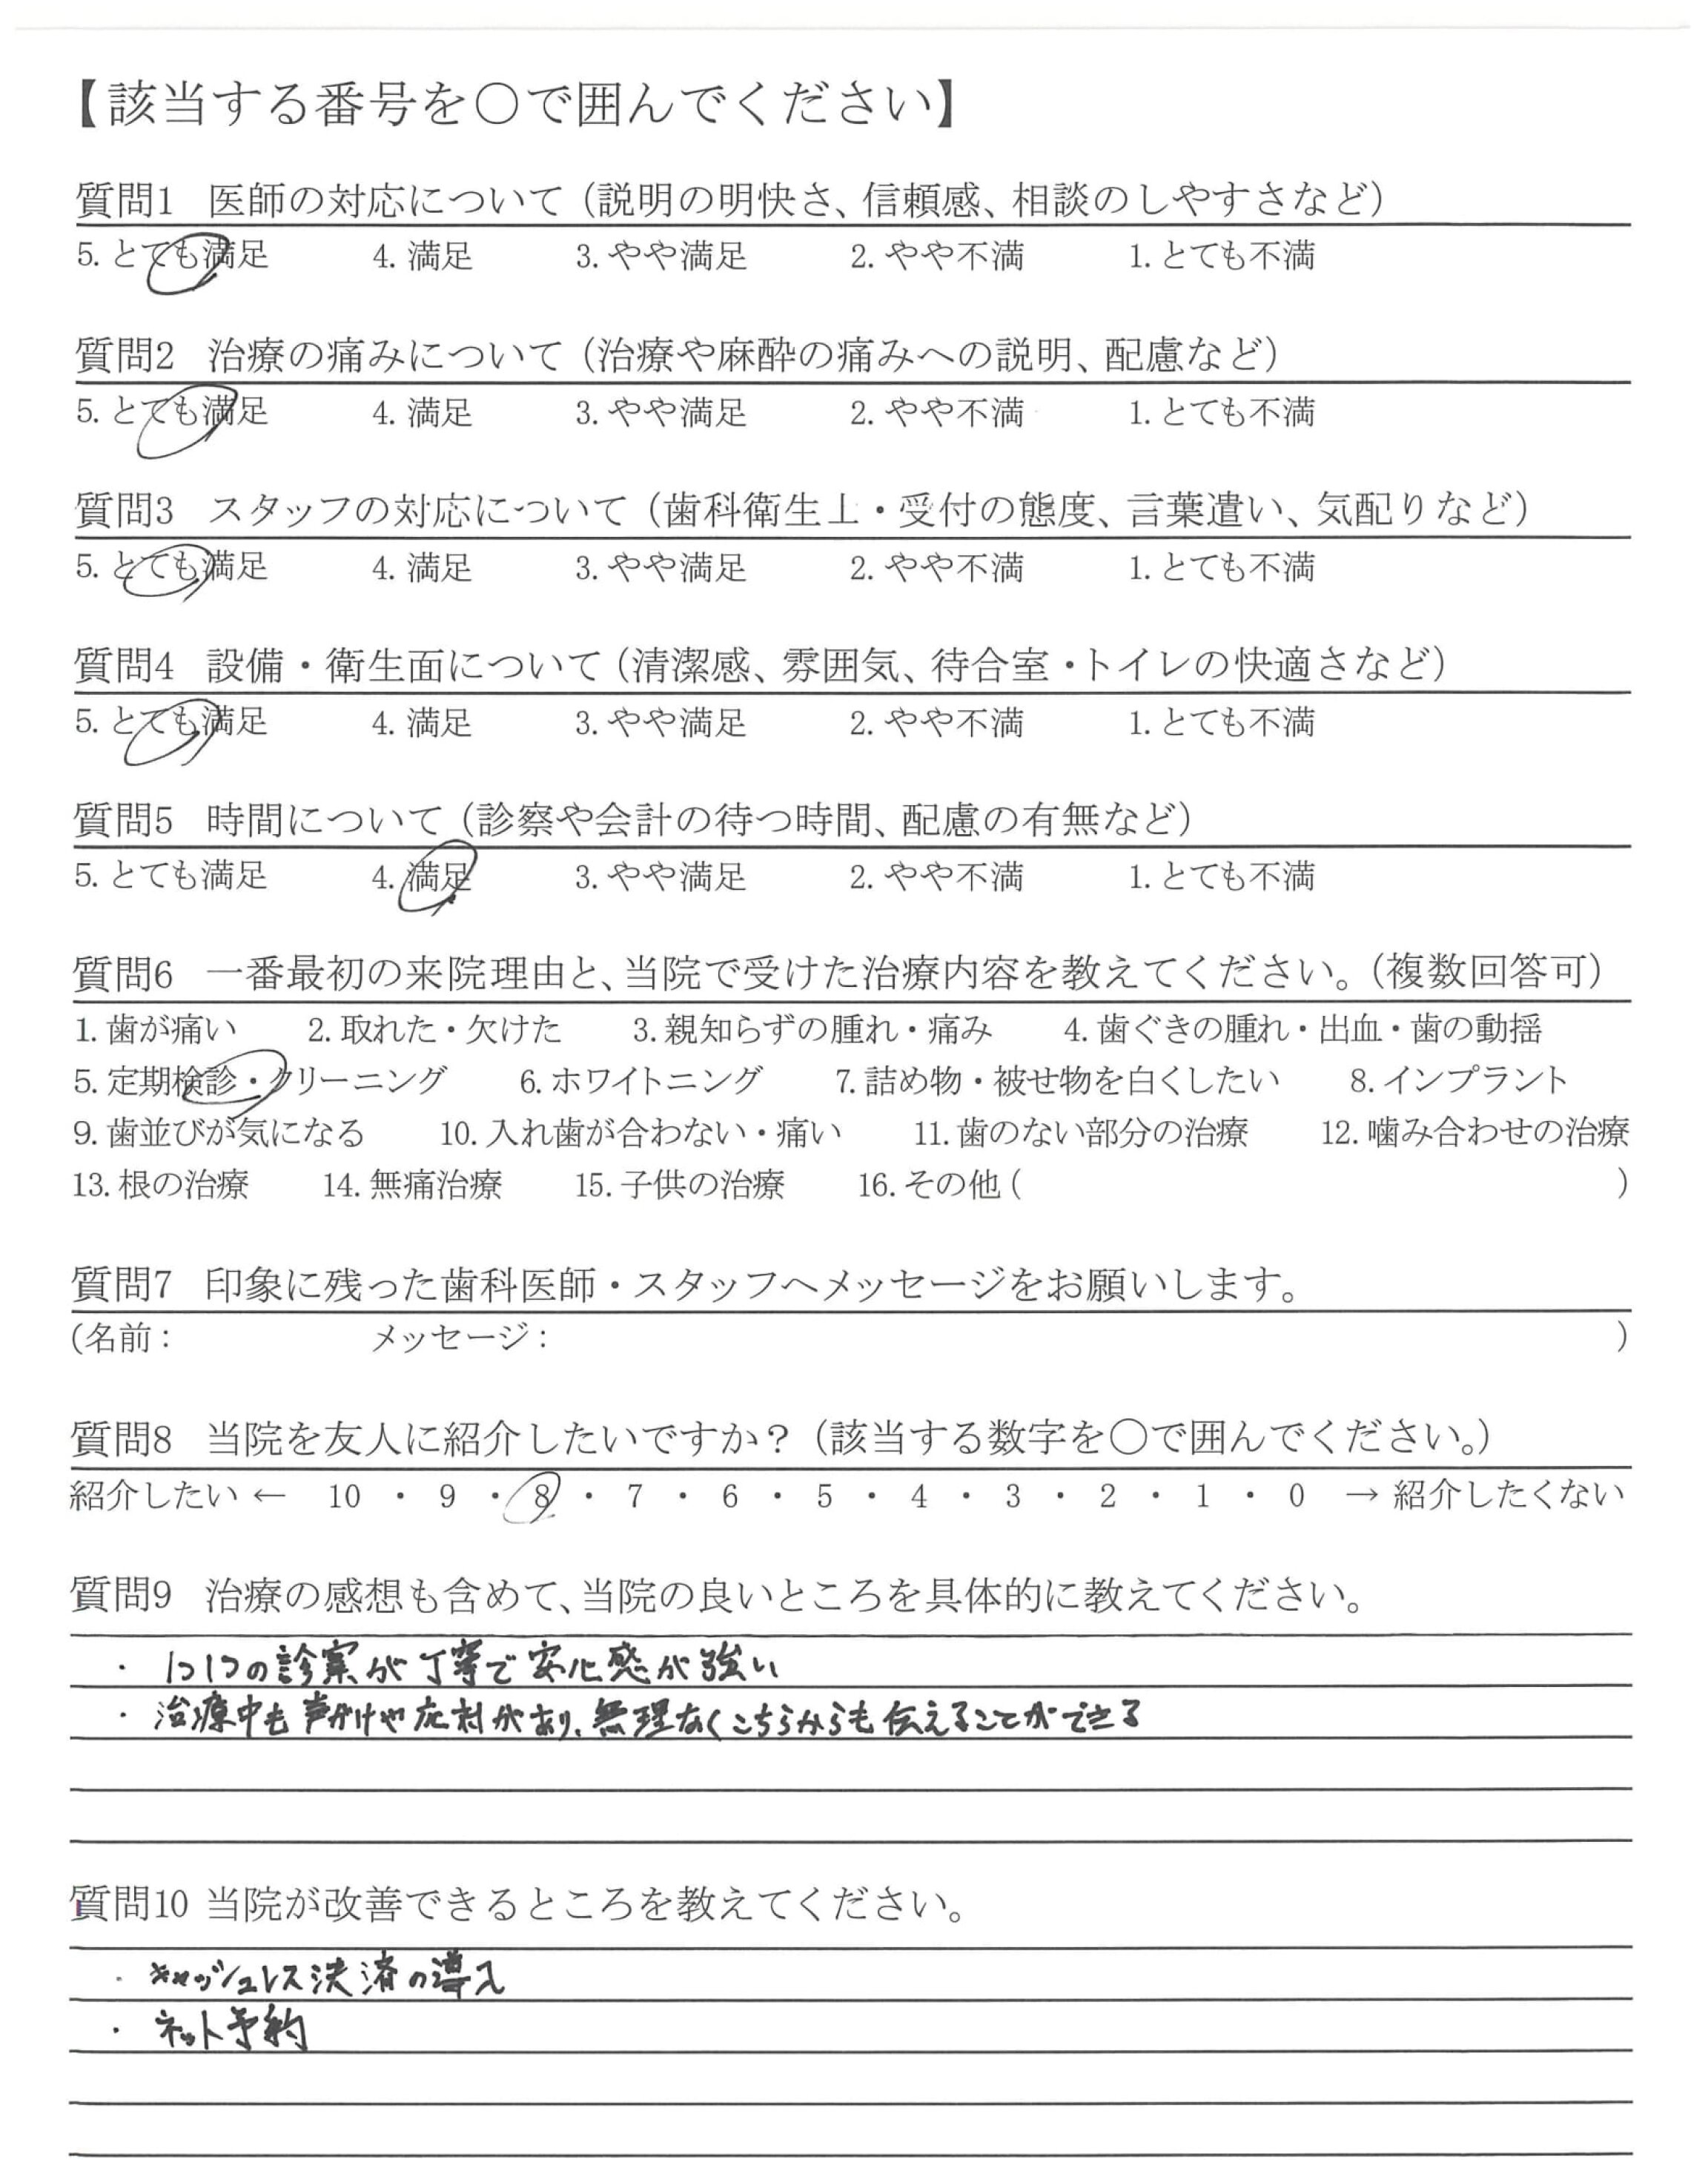 【該当する番号を○で囲んでください】
質問1 医師の対応について（説明の明快さ、信頼感、相談のしやすさなど）
5. とても満足 4. 満足 3. やや満足 2. やや不満 1. とても不満
質問2 治療の痛みについて（治療や麻酔の痛みへの説明、配慮など）
5. とても満足 4. 満足 3. やや満足 2. やや不満 1. とても不満
質問3 スタッフの対応について（歯科衛生士・受付の態度、言葉遣い、気配りなど）
5. とても満足 4. 満足 3. やや満足 2. やや不満 1. とても不満
質問4 設備・衛生面について（清潔感、雰囲気、待合室・トイレの快適さなど）
5. とても満足 4. 満足 3. やや満足 2. やや不満 1. とても不満
質問5 時間について（診察や会計の待つ時間、配慮の有無など）
5. とても満足 4. 満足 3. やや満足 2. やや不満 1. とても不満
質問6 一番最初の来院理由と、当院で受けた治療内容を教えてください。（複数回答可）
1. 歯が痛い 2. 取れた・欠けた 3. 親知らずの腫れ・痛み 4. 歯ぐきの腫れ・出血・歯の動揺
5. 定期検診・クリーニング 6. ホワイトニング 7. 詰め物・被せ物を白くしたい 8. インプラント
9. 歯並びが気になる 10. 入れ歯が合わない・痛い 11. 歯のない部分の治療 12. 噛み合わせの治療
13. 根の治療 14. 無痛治療 15. 子供の治療 16. その他（ ）
質問7 印象に残った歯科医師・スタッフへメッセージをお願いします。
（名前： メッセージ： ）
質問8 当院を友人に紹介したいですか？（該当する数字を○で囲んでください。）
紹介したい ← 10 ・ 9 ・ 8 ・ 7 ・ 6 ・ 5 ・ 4 ・ 3 ・ 2 ・ 1 ・ 0 → 紹介したくない
質問9 治療の感想も含めて、当院の良いところを具体的に教えてください。
・ 1つ1つの診察が丁寧で安心感が強い
・ 治療中も声がけや応対があり、無理なくこちらからも伝えることができる
質問10 当院が改善できるところを教えてください。
・ キャッシュレス決済の導入
・ ネット予約